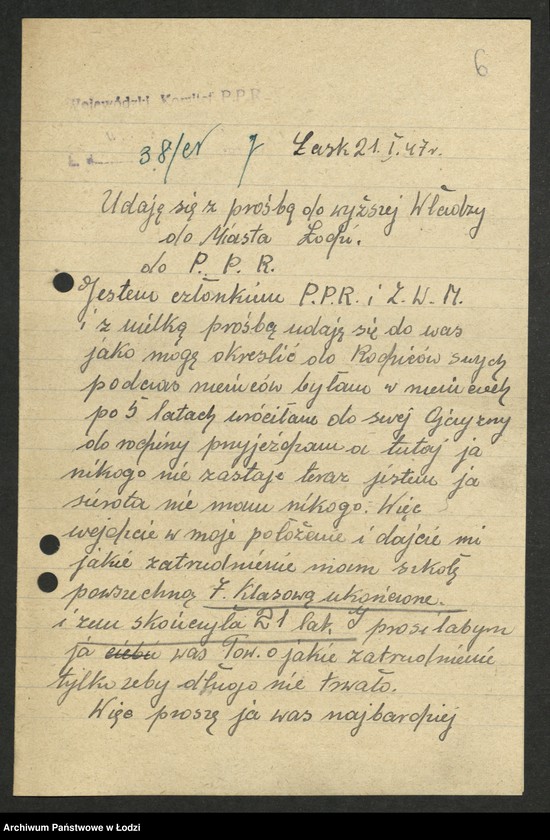 6
Wojewódzki Komitet P.P.R.
38/er
Łask 21.I.47r.
Udaję się z prośbą do wyższej Władzy
do Miasta Łodzi.
do P. P. R.
Jestem członkinim P.P.R. i Z. W. M.
i z wilką prośbą udaję się do was
jako mogę okreslić do Rodziców swych
podczas niemców byłam w niemczech
po 5 latach wróciłam do swej Ojczyzny
do rodziny przyjeżdzam a tutaj ja
nikogo nie zastaje teraz jestem ja
sierota nie mam nikogo. Więc
wejdzcie w moje położenie i dajcie mi
jakie zatrudnienie mam szkołę
powszechną 7. Klasową ukończone.
i żem skończyła 21 lat. I prosiłabym
ja was Tow. o jakie zatrudnienie
tylko żeby długo nie trwało.
Więc proszę ja was najbardziej
Archiwum Państwowe w Łodzi